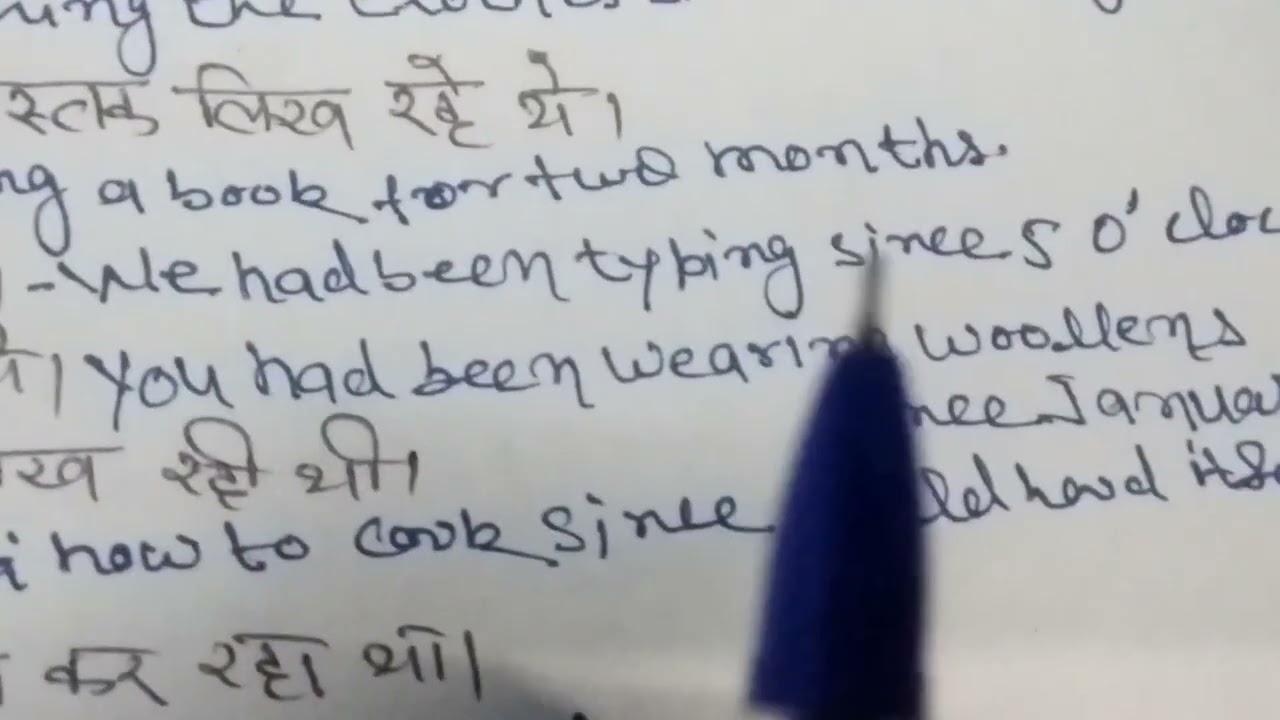 the
स्तक लिख रहे थे।
ng a book for two months.
- We had been typing since 5 o'cloc
। You had been wearing woollens
nce Januar
रही थी।
how to cook since ld hood itse
कर रहा था।